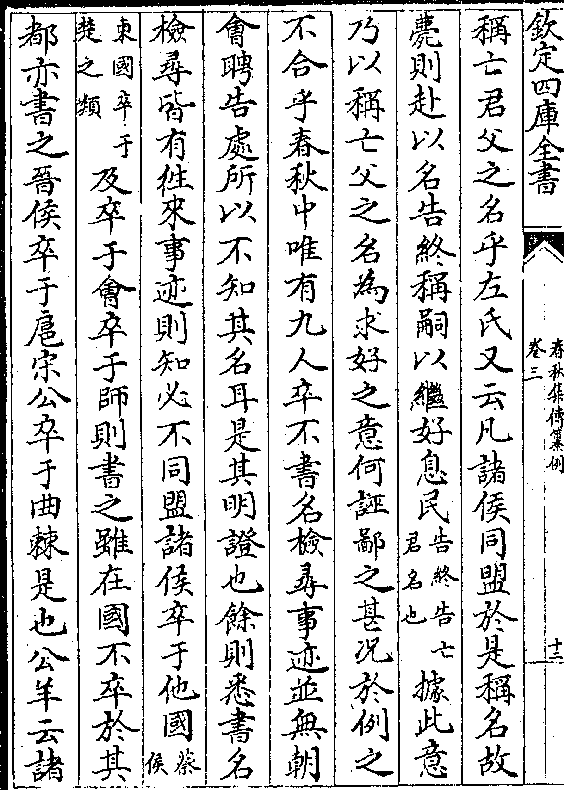 欽定四庫全書
春秋集傳纂例
卷三
十二
稱亡君父之名乎左氏又云凡諸侯同盟於是稱名故
薨則赴以名告終稱嗣以繼好息民告終告亡君名也據此意
乃以稱亡父之名為求好之意何誣鄙之甚况於例之
不合乎春秋中唯有九人卒不書名檢尋事迹並無朝
㑹聘告處所以不知其名耳是其明證也餘則悉書名
檢尋皆有徃來事迹則知必不同盟諸侯卒于他國蔡侯
東國卒于楚之類及卒于㑹卒于師則書之雖在國不卒於其
都亦書之晉侯卒于扈宋公卒于曲棘是也公羊云諸